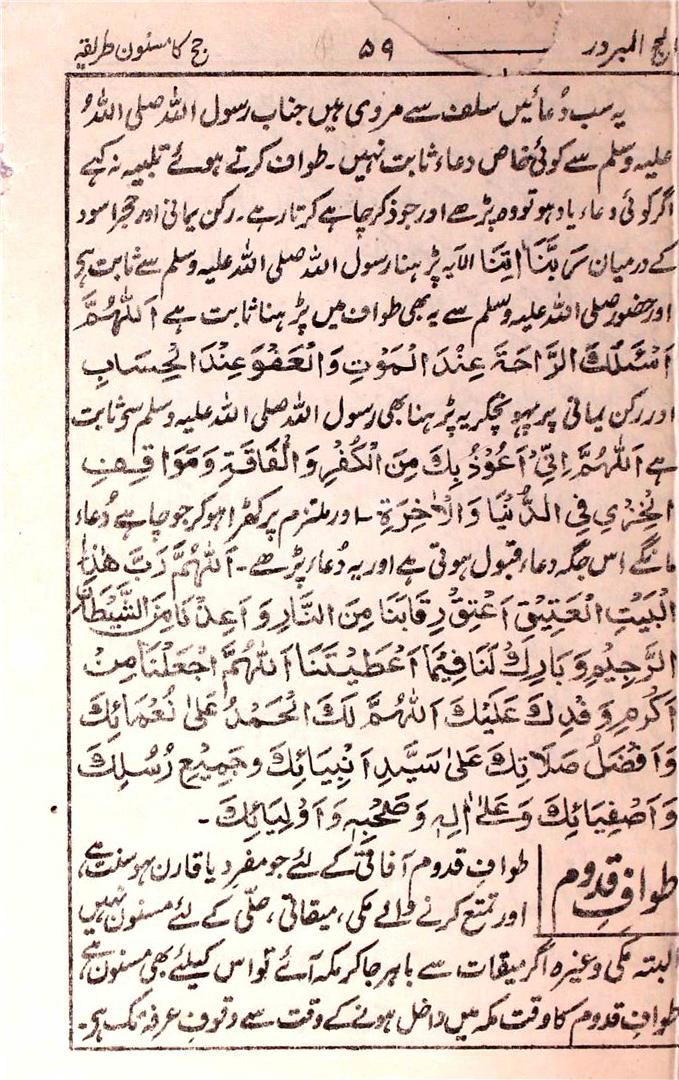 الحج المبرور ۵۹ حج کا مسنون طریقہ
یہ سب دُعائیں سلف سے مروی ہیں جناب رسول اللہ صلی اللہُ
علیہ وسلم سے کوئی خاص دعاء ثابت نہیں۔ طواف کرتے ہوئے تلبیہ نہ کہے
اگر کوئی دعاء یاد ہو تو وہ پڑھے اور جو ذکر چاہے کرتا رہے۔ رکن یمانی اور حجر اسود
کے درمیان رَبَّنَا اٰتِنَا الآیہ پڑہنا رسول اللہ صلی اللہ علیہ وسلم سے ثابت ہے
اور حضور صلی اللہ علیہ وسلم سے یہ بھی طواف میں پڑہنا ثابت ہے اَللّٰہُمَّ
اَسْئَلُكَ الرَّاحَةَ عِنْدَ الْمَوْتِ وَالْعَفْوَ عِنْدَ الْحِسَابِ
اور رکن یمانی پر پہونچکر یہ پڑہنا بھی رسول اللہ صلی اللہ علیہ وسلم سے ثابت
ہے اَللّٰهُمَّ اِنِّیْ اَعُوْذُ بِكَ مِنَ الْكُفْرِ وَالْفَاقَةِ وَمَوَاقِفِ
الْخِزْیِ فِی الدُّنْیَا وَالْاٰخِرَةِ۔ اور ملتزم پر کھڑا ہو کر جو چاہے دُعاء
مانگے اس جگہ دعاء قبول ہوتی ہے اور یہ دُعاء پڑھے۔ اَللّٰهُمَّ رَبَّ هٰذَا
الْبَیْتِ الْعَتِیْقِ اَعْتِقْ رِقَابَنَا مِنَ النَّارِ وَاَعِذْنَا مِنَ الشَّیْطَانِ
الرَّجِیْمِ وَبَارِكْ لَنَا فِیْمَا اَعْطَیْتَنَا اَللّٰهُمَّ اجْعَلْنَا مِنْ
اَكْرَمِ وَفْدِكَ عَلَیْكَ اَللّٰهُمَّ لَكَ الْحَمْدُ عَلٰی نَعْمَائِكَ
وَاَفْضَلُ صَلَاتِكَ عَلٰی سَیِّدِ اَنْبِیَائِكَ وَجَمِیْعِ رُسُلِكَ
وَاَصْفِیَائِكَ وَعَلٰی اٰلِهٖ وَصَحْبِهٖ وَاَوْلِیَائِكَ۔
طوافِ قدوم
طوافِ قدوم آفاقی کے لئے جو مفرد یا قارن ہو سنت ہے،
اور تمتع کرنے والے مکی، میقاتی، حلّی کے لئے مسنون نہیں
البتہ مکی وغیرہ اگر میقات سے باہر جا کر مکہ آئے تو اس کیلئے بھی مسنون ہے،
طوافِ قدوم کا وقت مکہ میں داخل ہونے کے وقت سے وقوفِ عرفہ تک ہے۔